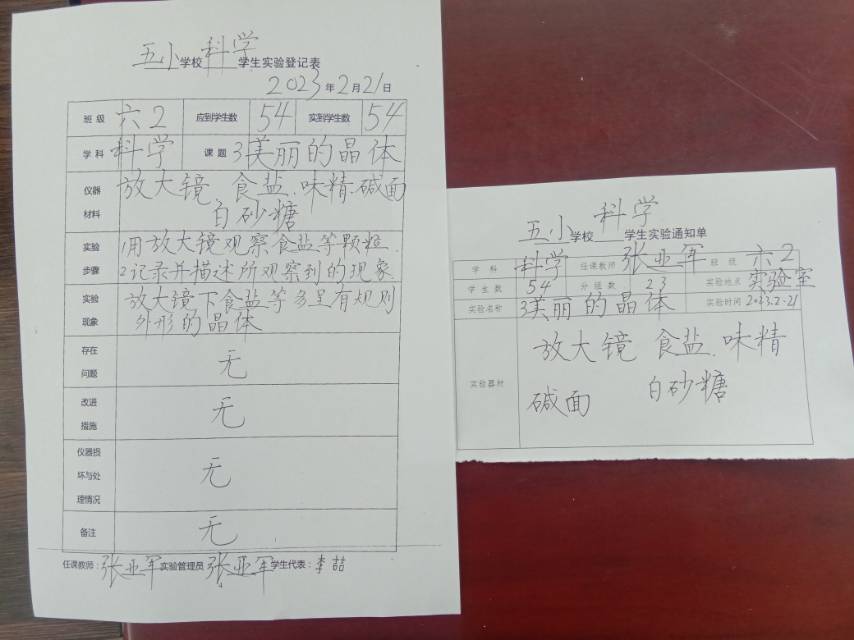 五小学校 科学 学生实验登记表
2023年2月21日
班级 六2 应到学生数 54 实到学生数 54
学科 科学 课题 3美丽的晶体
仪器材料 放大镜 食盐.味精.碱面
白砂糖
实验步骤 1用放大镜观察食盐等颗粒.
2记录并描述所观察到的现象
实验现象 放大镜下食盐等多呈有规则
外形的晶体
存在问题 无
改进措施 无
仪器损坏与处理情况 无
备注 无
任课教师:张亚军 实验管理员 张亚军 学生代表:李喆
五小学校 科学 学生实验通知单
学科 科学 任课教师 张亚军 班级 六2
学生数 54 分组数 23 实验地点 实验室
实验名称 3美丽的晶体 实验时间 2023.2.21
实验器材 放大镜 食盐.味精
碱面 白砂糖